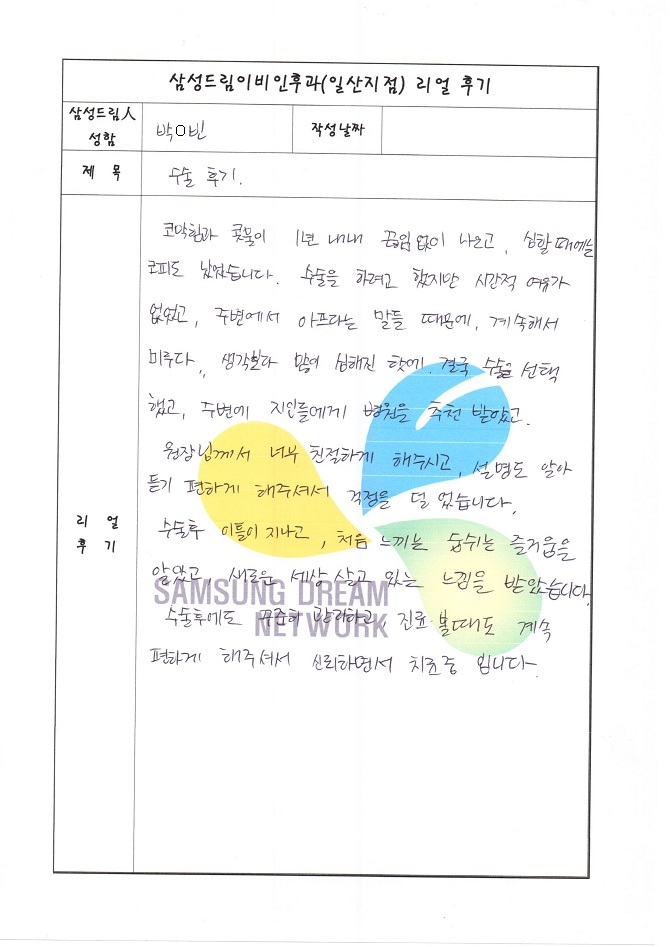 삼성드림이비인후과(일산지점) 리얼 후기
삼성드림人
성함
박O빈
작성날짜
제 목
수술 후기.
리 얼
후 기
코막힘과 콧물이 1년 내내 끊임없이 나오고, 심할때에는
코피도 났었습니다. 수술을 하려고 했지만 시간적 여유가
없었고, 주변에서 아프다는 말들 때문에, 계속해서
미루다, 생각보다 많이 심해진 탓에 결국 수술을 선택
했고, 주변에 지인들에게 병원을 추천 받았고.
원장님께서 너무 친절하게 해주시고, 설명도 알아
듣기 편하게 해주셔서 걱정을 덜 었습니다.
수술후 이틀이 지나고, 처음 느끼는 숨쉬는 즐거움을
알았고, 새로운 세상 살고 있는 느낌을 받았습니다.
수술후에도 꾸준히 관리하고, 진료 볼때도 계속
편하게 해주셔서 신뢰하면서 치료중 입니다.
SAMSUNG DREAM
NETWORK